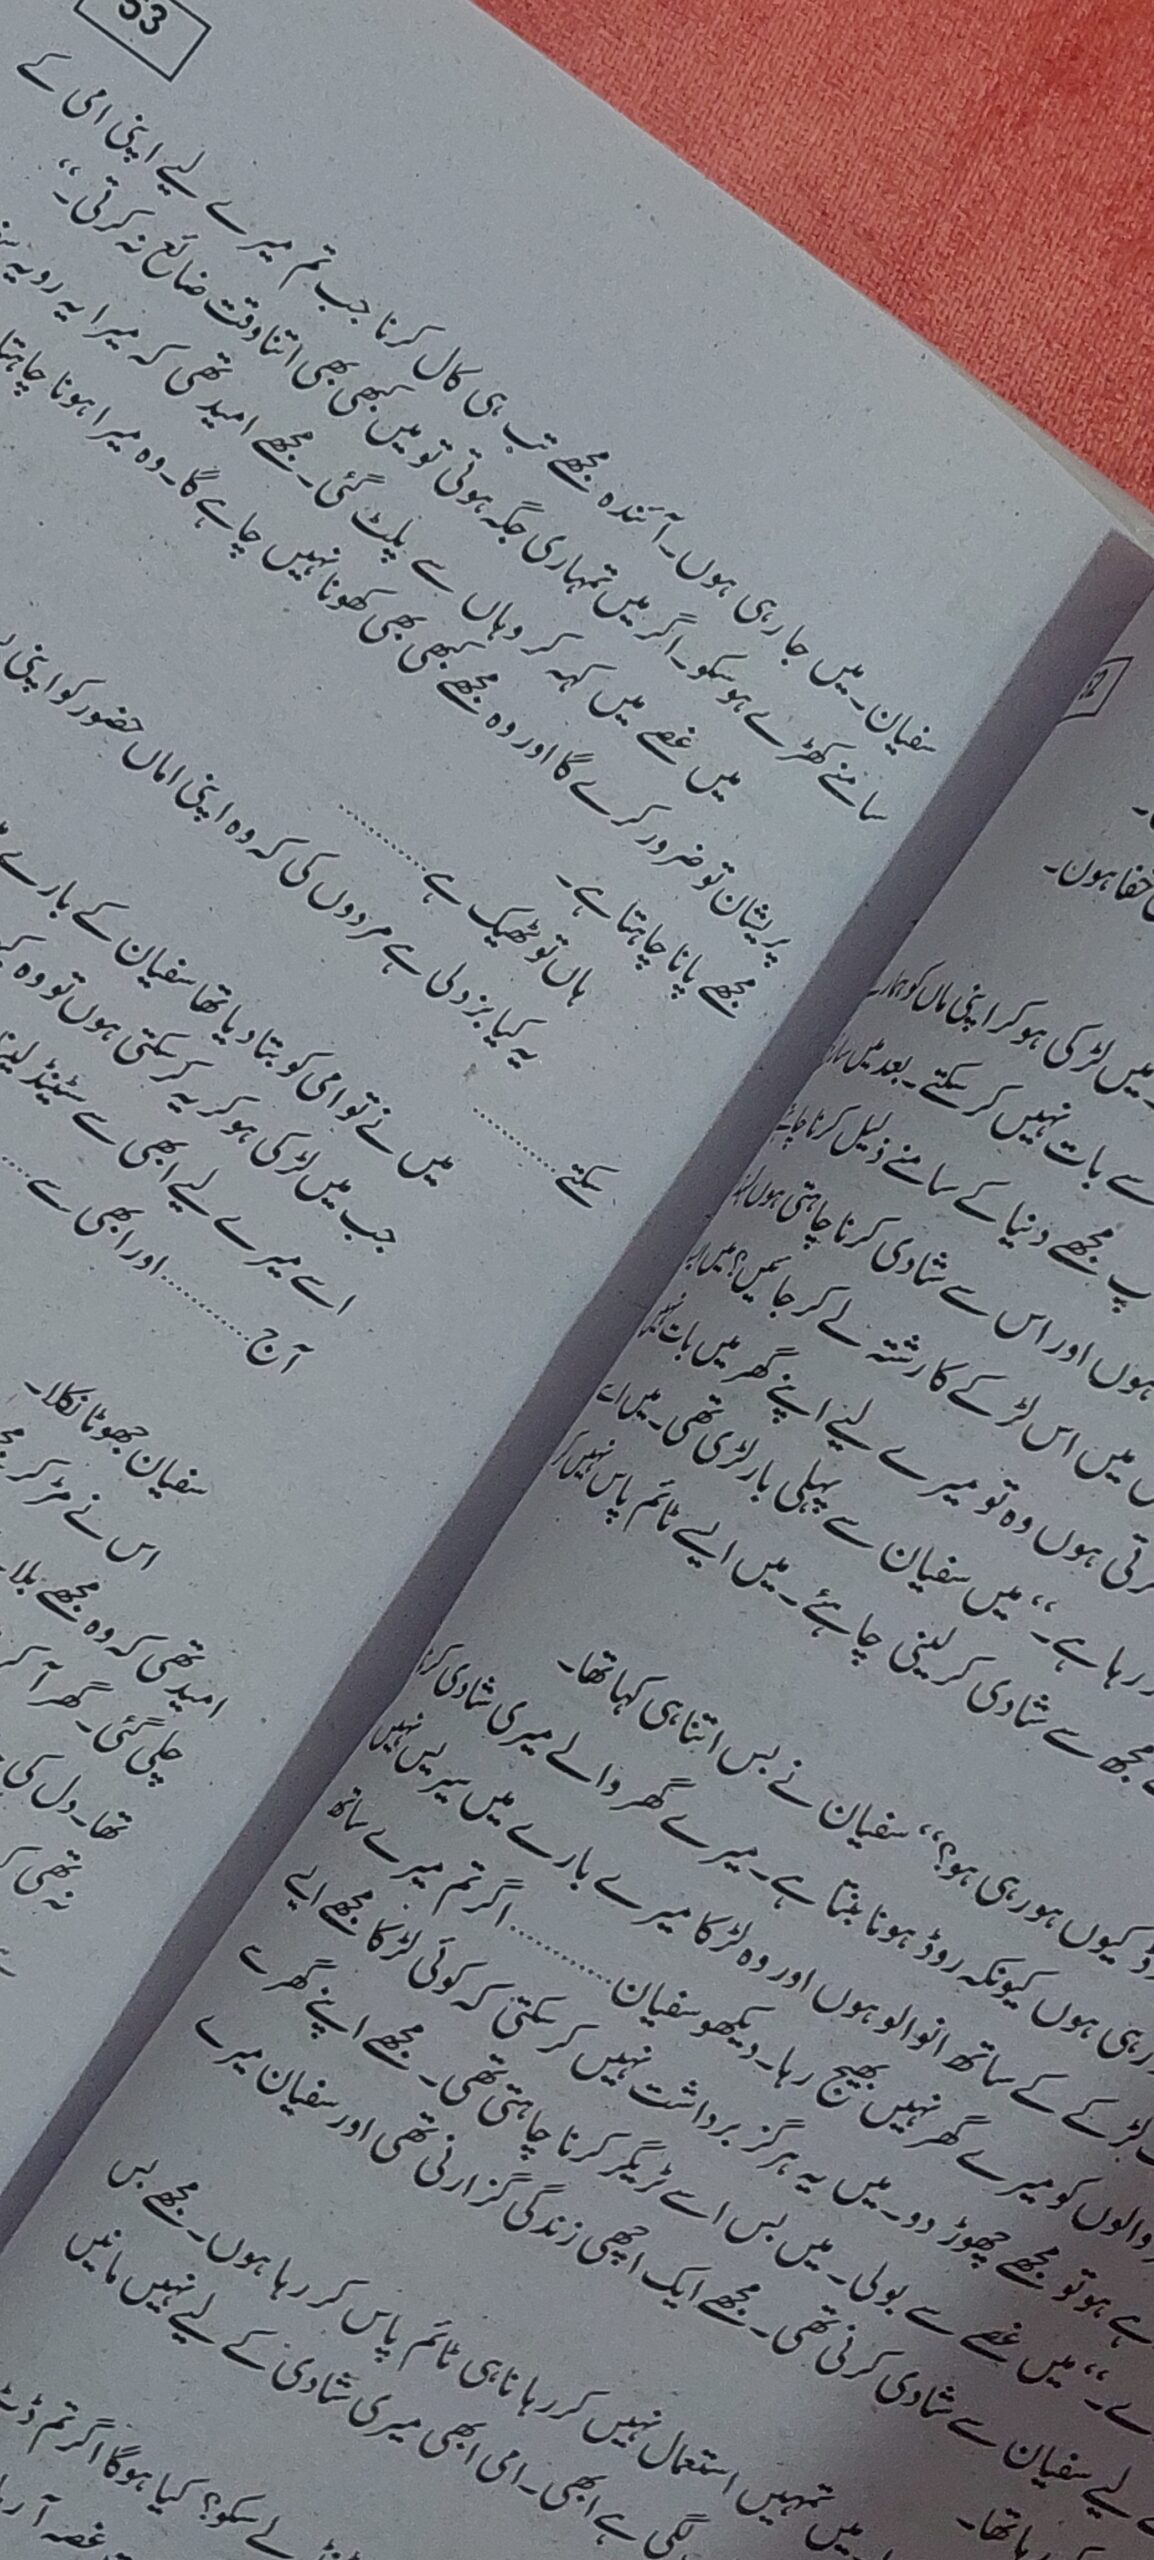 52
خفا ہوں۔
میں لڑکی ہو کر اپنی ماں کو
سے بات نہیں کر سکتے۔ بعد میں
مجھے دنیا کے سامنے ذلیل کرنا
ہوں اور اس سے شادی کرنا چاہتی ہوں
میں اس لڑکے کا رشتہ لے کر جائیں؟
ہوں وہ تو میرے لیے اپنے گھر میں بات نہیں
رہا ہے۔“ میں سفیان سے پہلی بار لڑی تھی۔
مجھ سے شادی کر لینی چاہئے۔ میں ایسے ٹائم پاس نہیں
کیوں ہو رہی ہو؟“ سفیان نے بس اتنا ہی کہا تھا۔
رہی ہوں کیونکہ روڈ ہونا بنتا ہے۔ میرے گھر والے میری شادی
لڑکے کے ساتھ انوالو ہوں اور وہ لڑکا میرے بارے میں سیریس نہیں
والوں کو میرے گھر نہیں بھیج رہا۔ دیکھو سفیان.......... اگر تم میرے ساتھ
ہو تو مجھے چھوڑ دو۔ میں یہ ہرگز برداشت نہیں کر سکتی کہ کوئی لڑکا مجھے ایسے
میں غصے سے بولی۔ میں بس اسے ٹریگر کرنا چاہتی تھی۔ مجھے اپنے گھر سے
لیے سفیان سے شادی کرنی تھی۔ مجھے ایک اچھی زندگی گزارنی تھی اور سفیان میرے
رہا تھا۔
میں تمہیں استعمال نہیں کر رہا نا ہی ٹائم پاس کر رہا ہوں۔ مجھے بس
لگی ہے ابھی۔ امی ابھی میری شادی کے لیے نہیں مانیں
لے سکو؟ کیا ہوگا اگر تم
غصہ آ رہا
53
سفیان۔ میں جا رہی ہوں۔ آئندہ مجھے تب ہی کال کرنا جب تم میرے لیے اپنی امی کے
سامنے کھڑے ہو سکو۔ اگر میں تمہاری جگہ ہوتی تو میں کبھی بھی اتنا وقت ضائع نہ کرتی۔“
میں غصے میں کہہ کر وہاں سے پلٹ گئی۔ مجھے امید تھی کہ میرا یہ رویہ
پریشان تو ضرور کرے گا اور وہ مجھے کبھی بھی کھونا نہیں چاہے گا۔ وہ میرا ہونا چاہتا
مجھے پانا چاہتا ہے۔
ہاں تو ٹھیک ہے..........
یہ کیا بزدلی ہے مردوں کی کہ وہ اپنی اماں حضور کو اپنی
سکتے..........
میں نے تو امی کو بتا دیا تھا سفیان کے بارے
جب میں لڑکی ہو کر یہ کر سکتی ہوں تو وہ
اسے میرے لیے ابھی سے سٹینڈ لینا
آج.......... اور ابھی سے..........
سفیان جھوٹا نکلا۔
اس نے مڑ کر
امید تھی کہ وہ مجھے بلا
چلی گئی۔ گھر آ کر
تھا۔ دل کی
نہ تھی